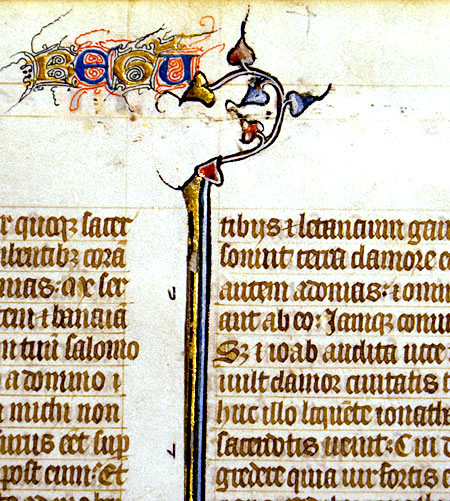 REGU
r quoqꝫ sacer
ulentibꝫ corā
nias:
⁊ banaia
salomo
a domino i
n michi non
surus eēt sup
post eum: Et
tibijs ⁊ letancium gau
sonuit terra clamore eo
autem adonias: ⁊ omn
ant ab eo: Jamqꝫ conui
Sꝫ ⁊ ioab audita uoce
uult clamor ciuitatis
huc illo loquēte ionath
sacerdotis uenit: Cui d
gredere quia uir fortis e